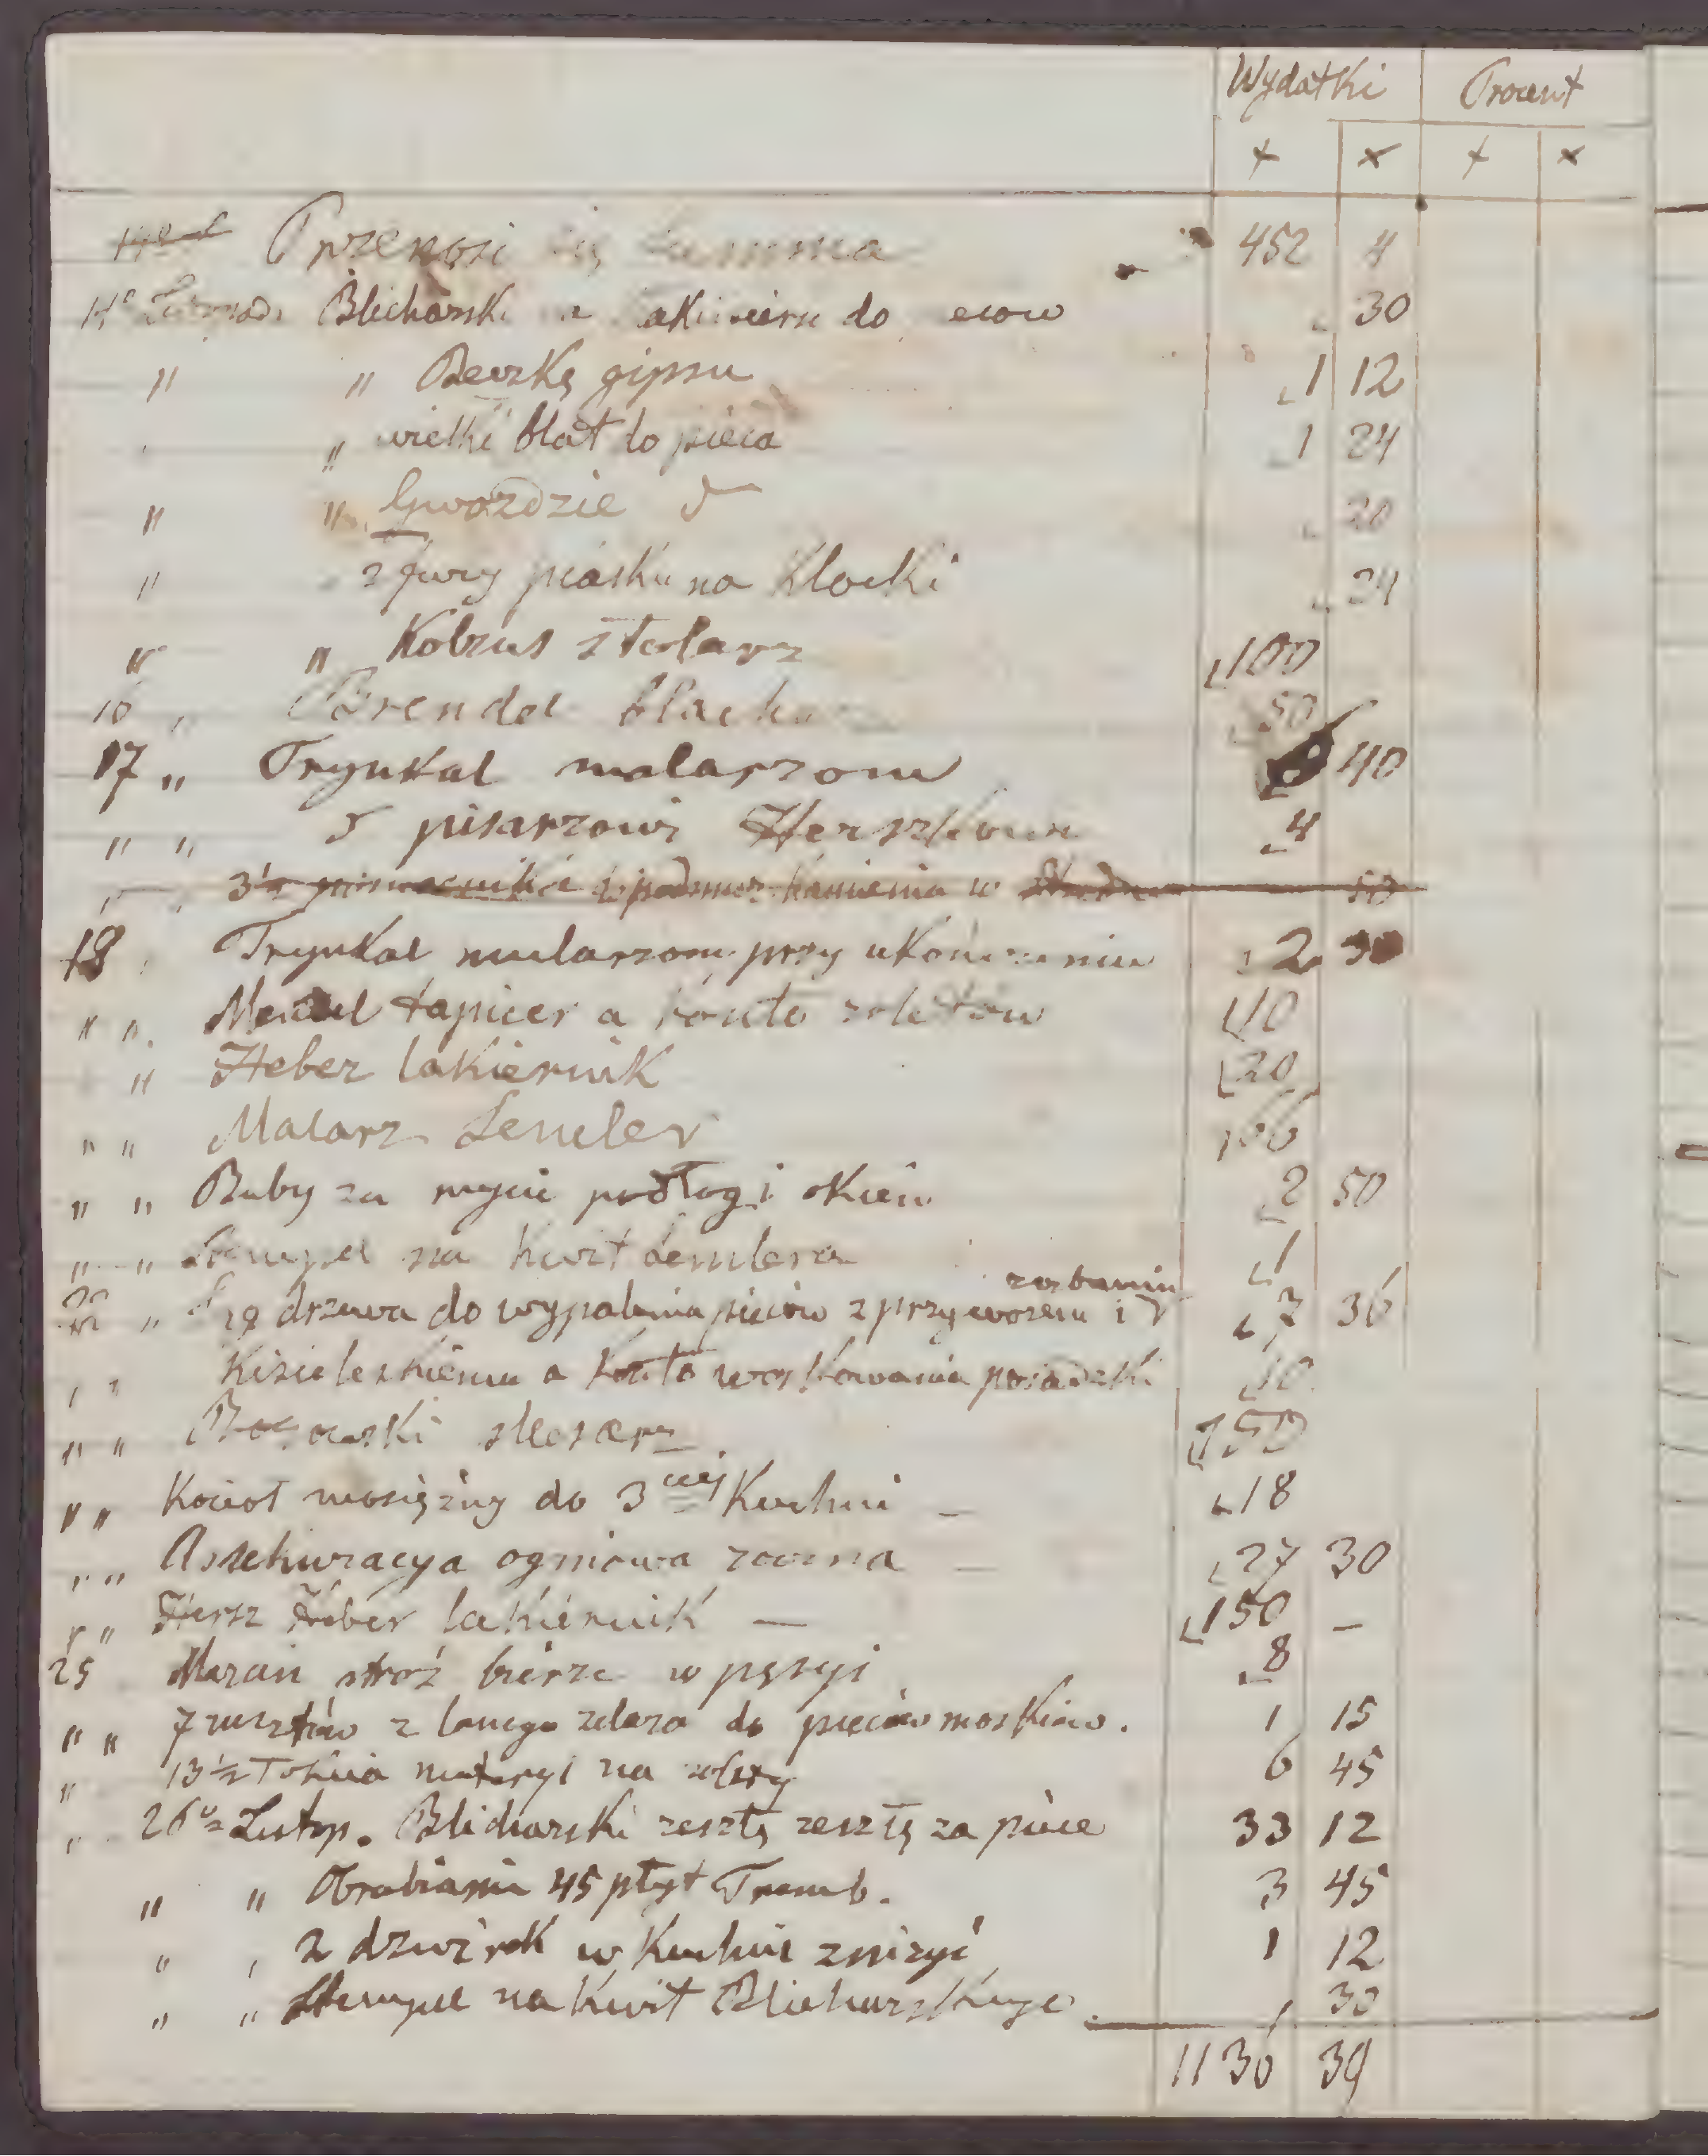 Wydatki Procent
+ x + x
Przenosi się Summa 452 4
14º Listopada Blicharski do 30
" " Beczkę gipsu 1 12
" wielki blat do pieca 1 24
" " Gwoździe 20
" 2 fury piasku na Klocki 24
" " Kobzus stolarz 100
16 " Brendel blacharz 50
17 " Trynkal malarzom 40
" " pisarzowi Herszkowi 4
3½ kamienia w 50
18 Trynkal mularzom przy ukończeniu 2 30
" " Mendel tapicer a konto roletów 40
" Heber lakiernik 20
" " Malarz Lemler 100
" " Baby za mycie podłog i okien 2 50
" " Stempel na kwit Lemlera 1
22 " drzewa do wypalenia pieców z przywozem i rąbaniem 7 36
" " Kisieleskiemu a konto woskowania posadzki 10
" " slosarz 150
" " Kocioł mosiężny do 3ciej Kuchni - 18
" " Assekuracya ogniowa roczna - 27 30
" " Hersz Heber lakiernik - 150 -
25 Marcin stróż bierze w pęsyi 8
" " 7 rusztów z lanego żelaza do pieców moskiew. 1 15
" 13½ łokcia materyi na rolety 6 45
" 26º Listop. Blicharski resztę resztę za piece 33 12
" " Obrabianie 45 płyt Tremb. 3 45
" " 2 drzwirek w Kuchni zniżyć 1 12
" " Stempel na kwit Blicharskiego 30
1136 39